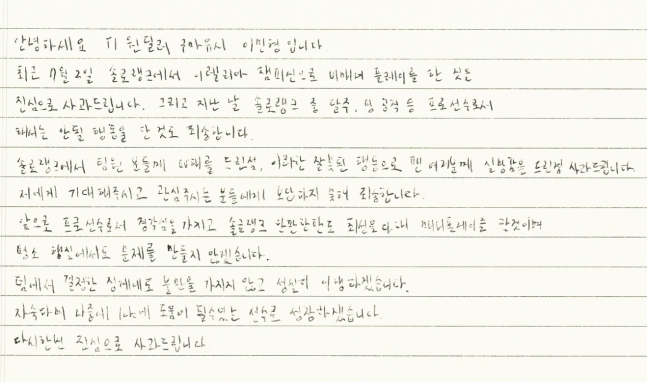 안녕하세요 T1 원딜러 구마유시 이민형입니다
최근 7월 2일 솔로랭크에서 이렐리아 챔피언으로 비매너 플레이를 한 것을
진심으로 사과드립니다. 그리고 지난 날 솔로랭크 중 탈주, 핑 공격 등 프로선수로서
해서는 안될 행동을 한 것도 죄송합니다.
솔로랭크에서 팀원 분들께 피해를 드린점, 이러한 잘못된 행동으로 팬 여러분께 실망감을 드린점 사과드립니다.
저에게 기대해주시고 관심주시는 분들에게 보답하지 못해 죄송합니다.
앞으로 프로선수로서 경각심을 가지고 솔로랭크 한판한판도 최선을 다해 매너플레이를 할것이며
평소 행실에서도 문제를 만들지 않겠습니다.
팀에서 결정한 징계에도 불만을 가지지 않고 성실히 이행하겠습니다.
자숙하며 나중에 팀에 도움이 될수있는 선수로 성장하겠습니다.
다시한번 진심으로 사과드립니다